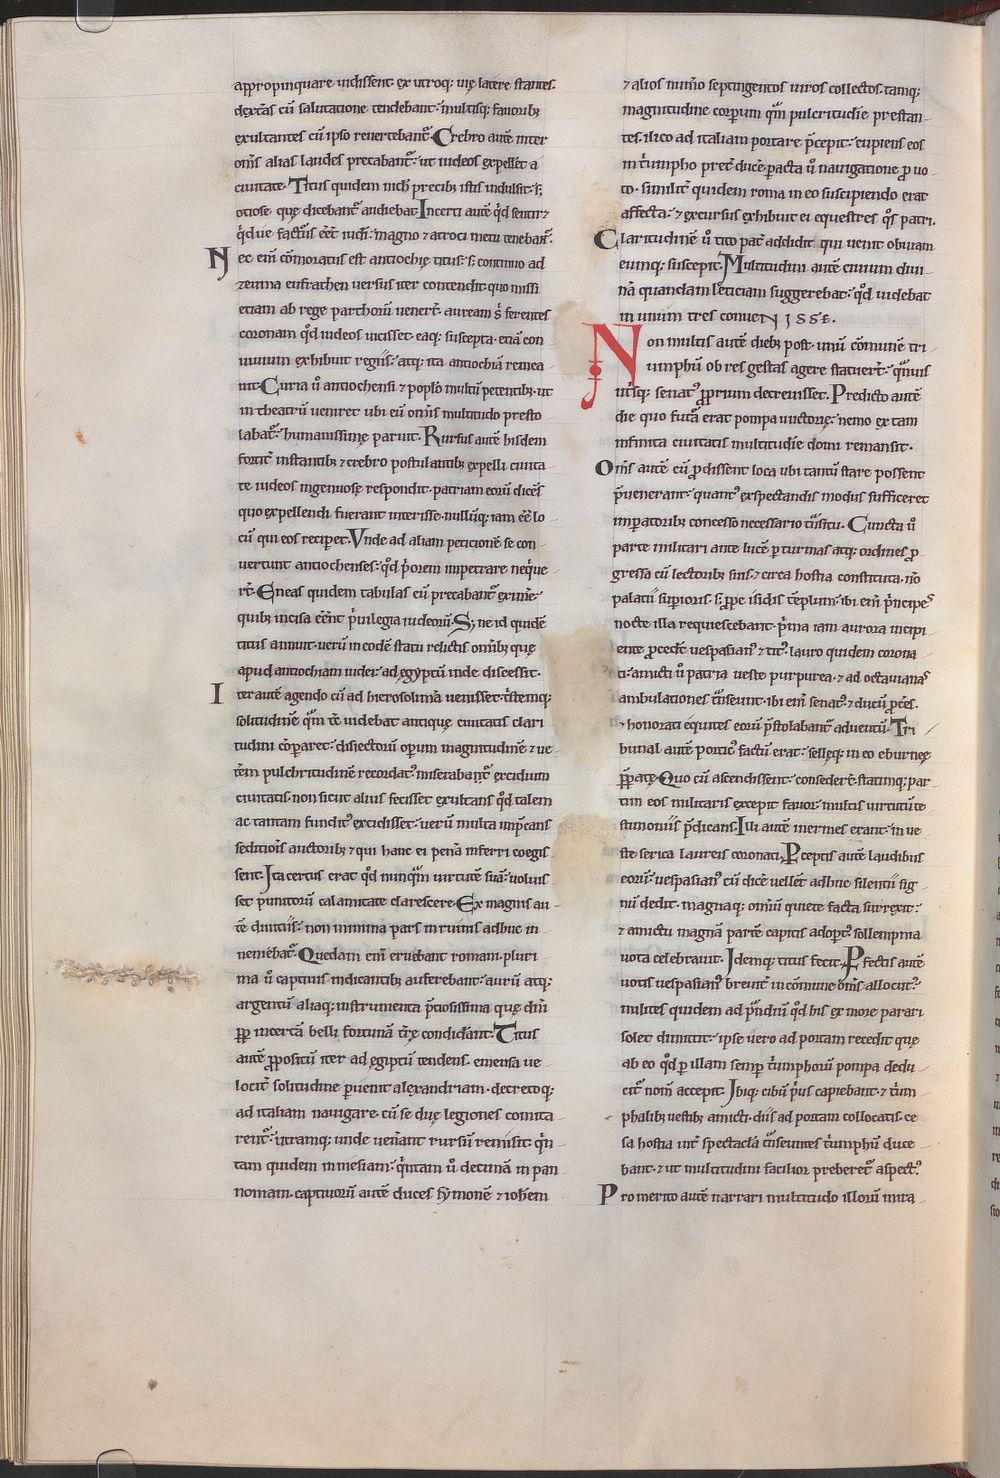 appropinquare uidissent. ex utroq; uię latere stantes.
dext̄as cū salutatione tendebant. multisq; fauorib;
exultantes cū ipso reuertebant᷑. Crebro autē inter
om̄s alias laudes precabant᷑. ut iudeos expellet a
ciuitate. Titus quidem nichil precib; istis indulsit. s;
ociose quę dicebant᷑ audiebat. Incerti autē qd sentiret
qdue facturus eēt iudei. magno & atroci metu tenebant᷑.
Nec eni cōmoratus est antiochię titus. s; continuo ad
zeuma eufraten uersus iter contendit. quo missi
etiam ab rege parthorū uenert. auream ferentes
coronam qd iudeos uicisset. eaq; suscepta. etiā con
uiuium exhibuit regiis. atq; ita antiochiā remea
uit. Curia u antiochensi & poplo multū petentib; ut
in theatrū ueniret ubi eū om̄is multitudo presto
labat᷑. humanissime paruit. Rursus autē hisdem
fortit instantib; & crebro postulantib; expelli ciuita
te iudeos ingeniose respondit. patriam eorū dicēs
quo expellendi fuerant interisse. nullūq; iam eēt lo
cū qui eos reciperet. Vnde ad aliam peticionē se con
uertunt antiochenses. qd priorem impetrare neque
rt. Eneas quidem tabulas eū precabant᷑ eximet.
quib; incisa eēnt priuilegia iudeorū. S; ne id quidē
titus annuit. uerū in eodē statu relictis omib; quę
apud antiochiam iudei. ad egyptū inde discessit.
Iter autē agendo cū ad hierosolimā uenisset. tristemq;
solitudinē quam tc̄ uidebat antique ciuitatis clari
tudini cōparet. disiectorū operum magnitudinē & ue
terem pulchritudinē recordat᷒ miserabant᷑ excidium
ciuitatis. non sicut alius fecisset exultans qd talem
ac tantam fundit᷒ excidisset. uerū multa imprecans
seditionis auctorib; & qui hanc ei penā inferri coegis
sent. Ita certus erat qd nunquam uirtutē suā uoluis
set punitorū calamitate clarescere. Ex magnis au
tē diuitiis. non minima pars in ruinis adhuc in
ueniebat᷑. Quedam eni eruebant romani. pluri
ma u captiuis indicantib; auferebant. aurū atq;
argentū aliaq; instrumenta pretiosissima quę dn̄i
ppt incertā belli fortunā trę condidant. Titus
autē ppositū iter ad egiptū tendens. emensa ue
locit solitudine puenit alexandriam. decretoq;
ad italiam nauigare. cū se duę legiones comita
rent᷑. utramq; unde uenant rursū remisit. qn
tam quidem in mesiam. quintam u decimā in pan
noniam. captiuorū autē duces symonē & iohem
& alios numo septingentos uiros collectos. tamq;
magnitudine corporum quam pulcritudie prestan
tes. ilico ad italiam portare precepit. cupiens eos
in triumpho pret ducē. pacta u nauigatione pro uo
to. similit quidem roma in eo suscipiendo erat
affecta. & excursus exhibuit ei equestres qs patri.
Claritudinē u tito pat addidit qui uenit obuiam
eumq; suscepit. Multitudini autē ciuium diui
nā quandam leticiam suggerebat. qd uidebat
in unum tres conueNISSE.
Non multis autē dieb; post. unū cōmunē tri
umphū ob res gestas agere statuert. quāuis
utriq; senat᷒ pprium decreuisset. Predicto autē
die quo futa erat pompa uictorię. nemo ex tam
infinita ciuitatis multitudie domi remansit.
Om̄s autē cū pdissent loca ubi tantū stare possent
pruenerant. quant᷒ exspectandis modus sufficeret
imperatorib; concesso necessario transitu. Cuncta u
parte militari ante lucē p turmas atq; ordines pro
gressa cū lectorib; suis. & circa hostia constituta. nō
palatii supioris. s; ppe isidis templum. ibi eni prīncipes
nocte illa requiescebant. prima iam aurora incipi
ente procedt uespasian᷒ & tit᷒. lauro quidem corona
ti. amicti u patria ueste purpurea. & ad octauianas
ambulationes transeunt. ibi eni senat᷒. & ducū pces.
& honorati equites eorū prestolabant᷑ aduentū. Tri
bunal autē portic᷒ factū erat. sellęq; in eo eburneę
pparate. Quo cū ascendissent. consedert. statimq; par
tim eos militaris excepit fauor. multis uirtutū te
stimoniis predicans. Illi autē inermes erant. in ue
ste serica laureis coronati. Pceptis autē laudibus
eorū. uespasian᷒ cū dicē uellet adhuc silentii sig
nū dedit. magnaq; omiū quiete facta surrexit.
& amictu magnā partē capitis adopt᷒. sollempnia
uota celebrauit. Idemq; titus fecit. Pfectis autē
uotis uespasian᷒ breuit in cōmune om̄s allocut᷒.
milites quidem ad prandiū qd his ex more parari
solet dimittit. ipse uero ad portam recedit quę
ab eo qd p illam semp triumphorū pompa dedu
cit᷑ nom̄ accepit. Ibiq; cibū prius capiebant. & trium
phalib; uestib; amicti. diis ad portam collocatis. ce
sa hostia int spectacla transeuntes triumphū duce
bant. & ut multitudini facilior preberet᷑ aspect᷒.
Pro merito autē narrari multitudo illorū mira